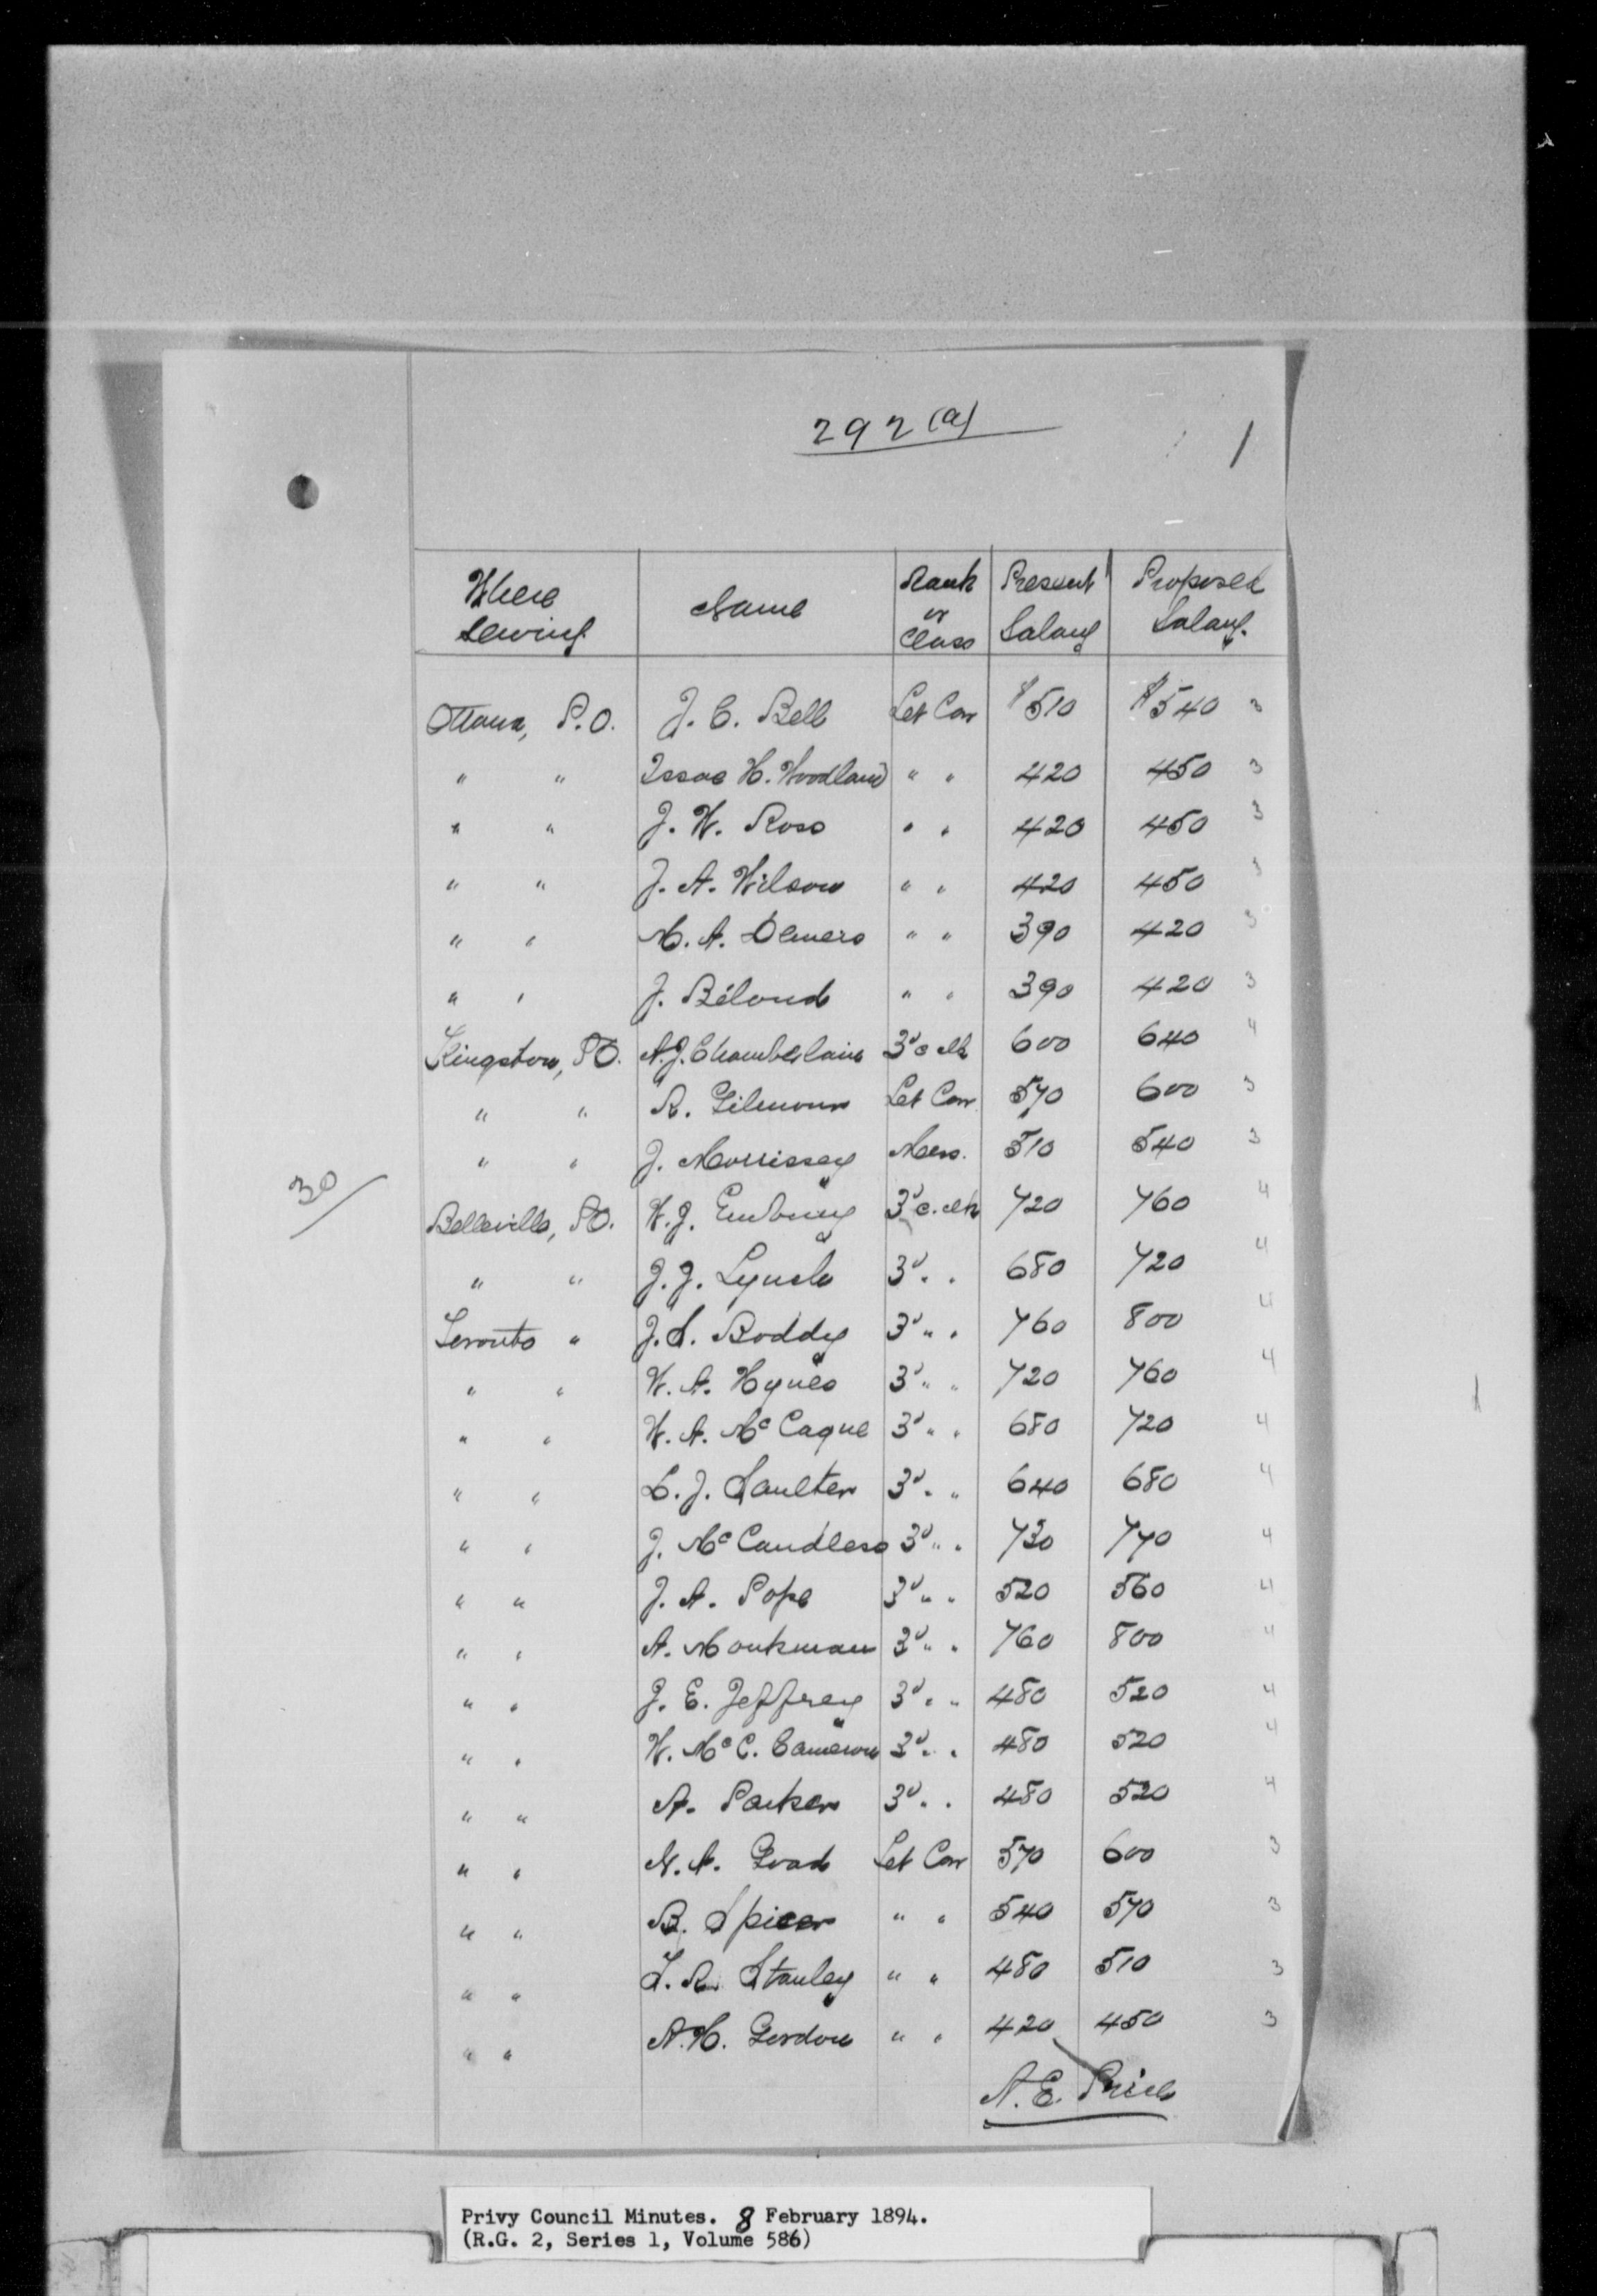 292 (a)
1
Where Serving Name Rank or Class Present Salary Proposed Salary.
Ottawa, P.O. J. C. Bell Let Carr $510 $540 3
" " Issac H. Woodland " " 420 450 3
" " J. W. Ross " " 420 450 3
" " J. A. Wilson " " 420 450 3
" " M. A. Demers " " 390 420 3
" " J. Béland " " 390 420 3
Kingston, P.O. A. J. Chamberlain 3d c clk 600 640 4
" " R. Gilmour Let Carr 570 600 3
" " J. Morrissey Mess. 510 540 3
30
Belleville, P.O. W. J. Embury 3d c. clk 720 760 4
" " J. J. Lynch 3d " " 680 720 4
Toronto " J. S. Boddy 3d " " 760 800 4
" " W. A. Hynes 3d " " 720 760 4
" " W. A. McCague 3d " " 680 720 4
" " L. J. Saulter 3d " " 640 680 4
" " J. McCandless 3d " " 730 770 4
" " J. A. Pope 3d " " 520 560 4
" " A. Monkman 3d " " 760 800 4
" " J. E. Jeffrey 3d " " 480 520 4
" " W. McC. Cameron 3d " " 480 520 4
" " A. Parker 3d " " 480 520 4
" " N. A. Goad Let Carr 570 600 3
" " B. Spicer " " 540 570 3
" " T. R. Stanley " " 480 510 3
" " A. H. Gordon " " 420 450 3
A. E. Price
Privy Council Minutes. 8 February 1894.
(R.G. 2, Series 1, Volume 586)